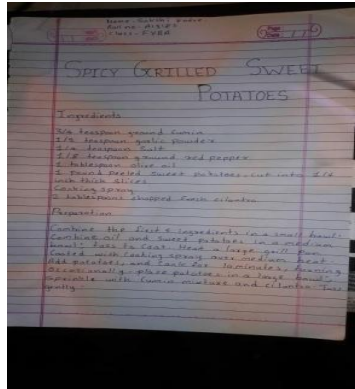 SPICY GRILLED SWEET
POTATOES
Ingredients
3/4 teaspoon ground cumin
1/2 teaspoon garlic powder
1/4 teaspoon salt
1/8 teaspoon ground red pepper
1 tablespoon olive oil
1 pound peeled sweet potatoes, cut into 1/4
inch thick slices
Cooking spray
2 tablespoons chopped fresh cilantro
Preparation
Combine the first 4 ingredients in a small bowl.
Combine oil and sweet potatoes in a medium
bowl; toss to coat. Heat a large grill pan
coated with cooking spray over medium heat.
Add potatoes, and cook for 10 minutes, turning
occasionally. place potatoes in a large bowl;
sprinkle with cumin mixture and cilantro. Toss
gently.